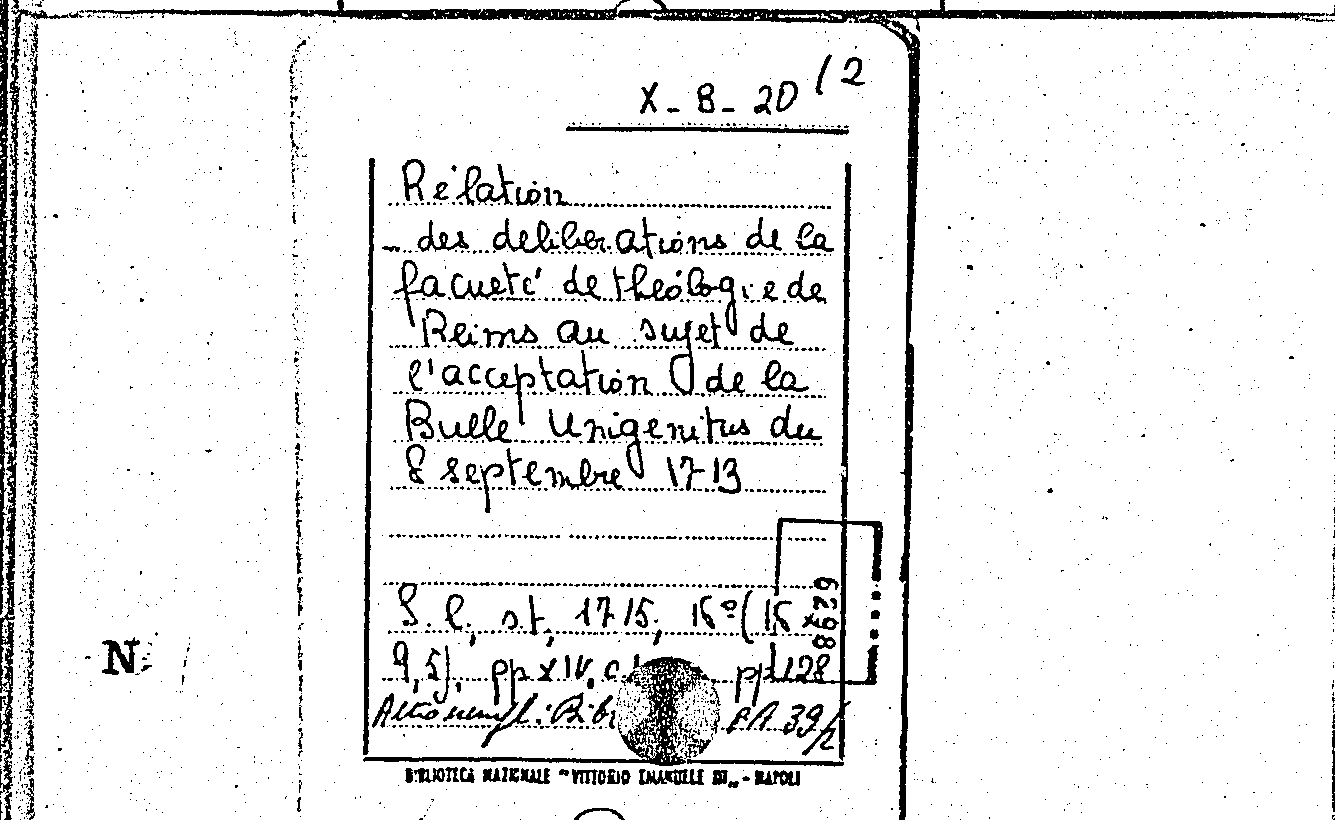 X-B-20/2
Rélation
des deliberations de la
faculté de théologie de
Reims au sujet de
l'acceptation de la
Bulle Unigenitus du
8 septembre 1713
S. l., s. t., 1715, 16º (16 x
9,5), pp XIV, pp 128
6298
Altro esempl.: Bibl 39/2
BIBLIOTECA NAZIONALE "VITTORIO EMANUELE III„ - NAPOLI
N